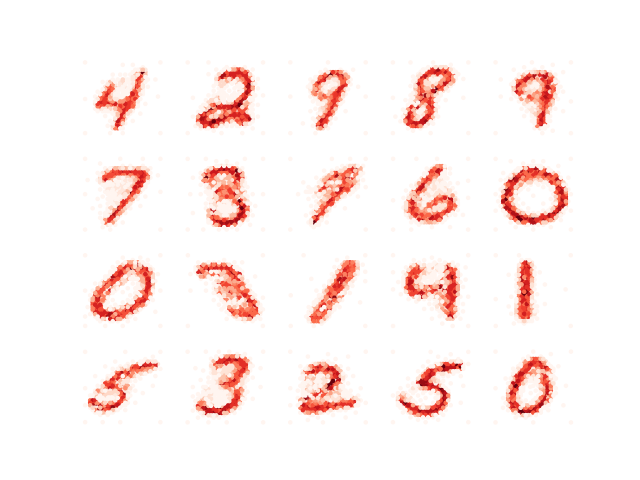 4 2 9 8 9
7 3 9 6 0
0 1 4 1
5 3 2 5 0